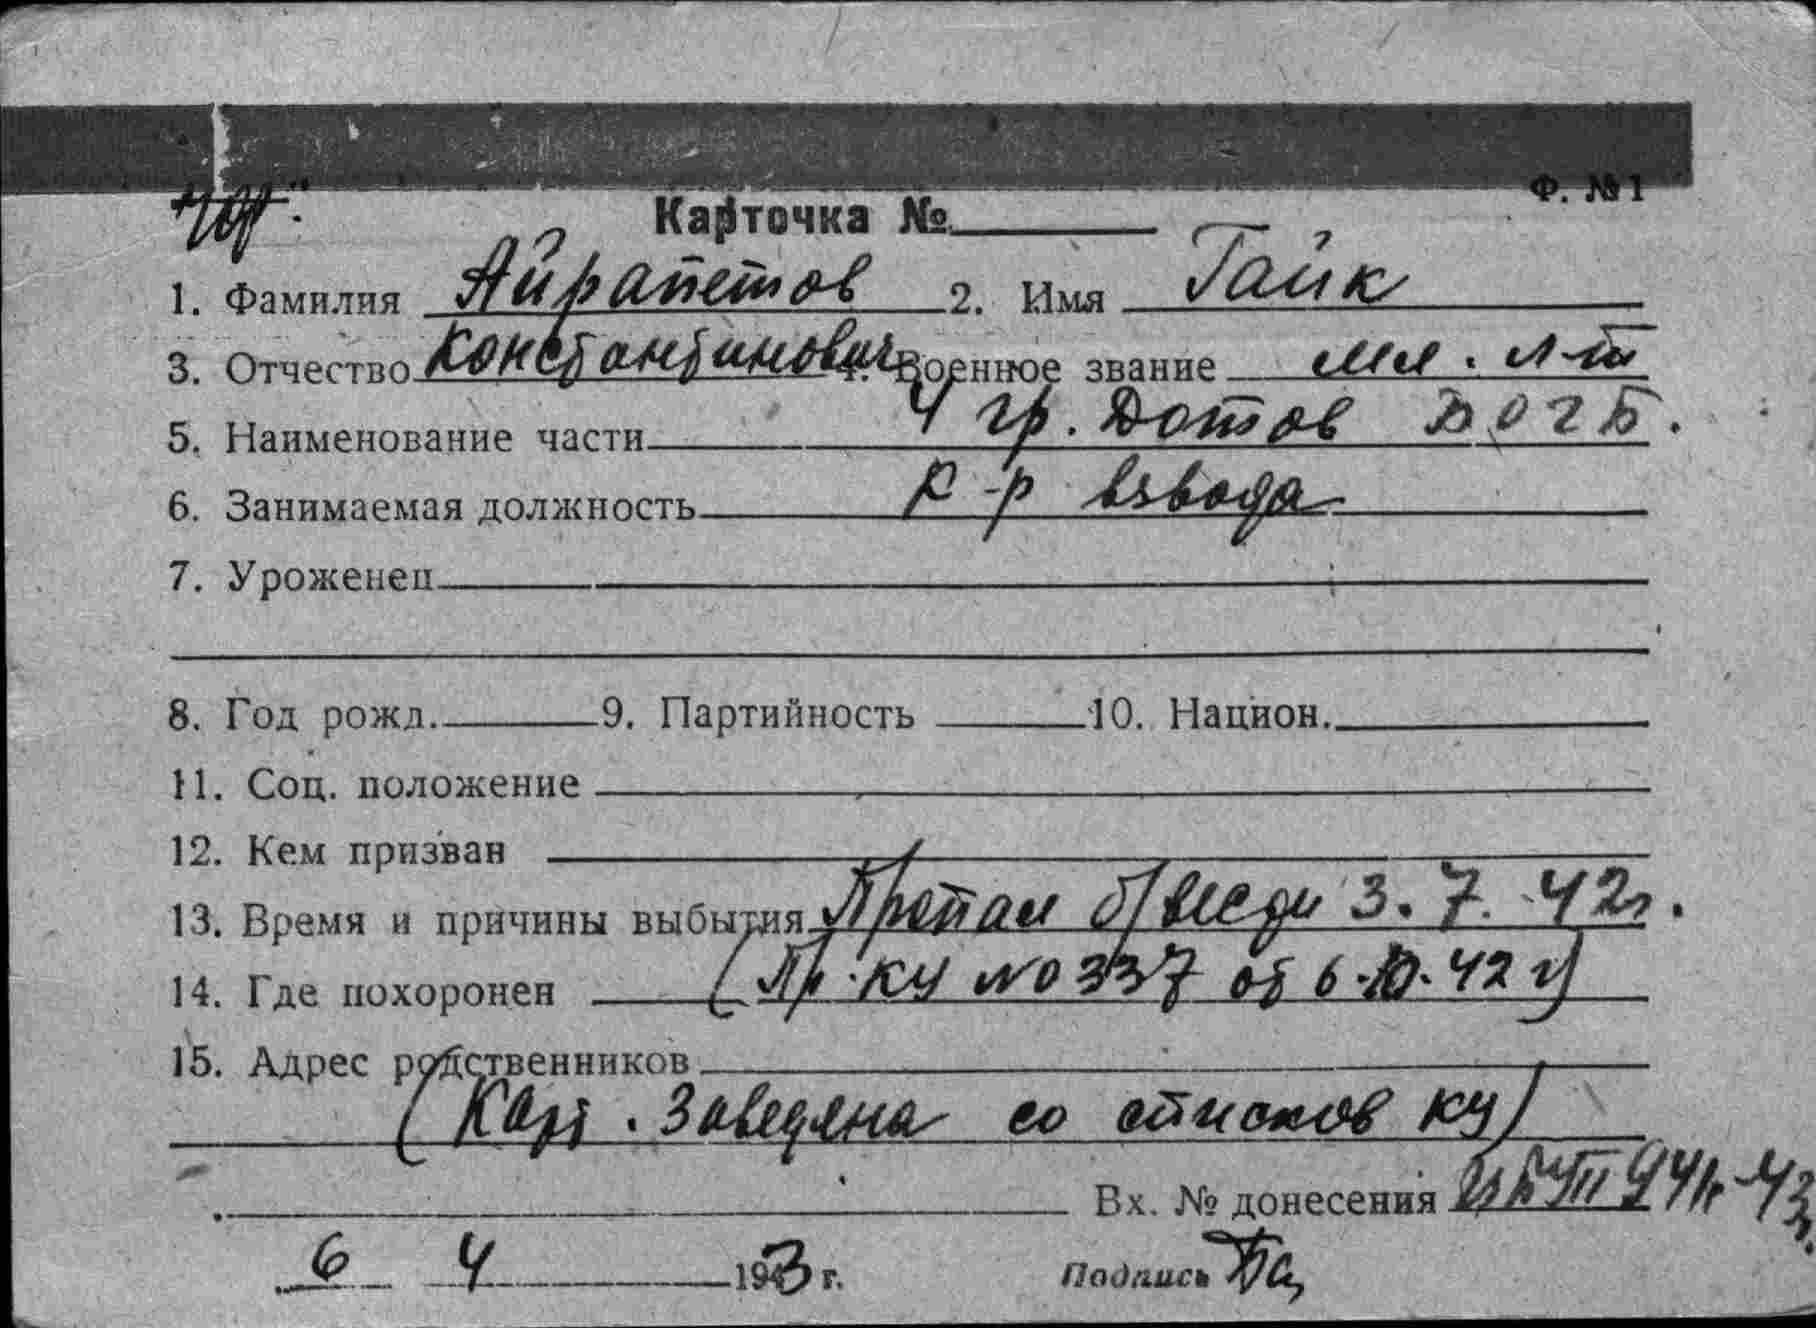 Ф. №1
Карточка №
1. Фамилия Айрапетов 2. Имя Гайк
3. Отчество Константинович 4. Военное звание мл. л-т
5. Наименование части 4 гр. Дотов БОГБ.
6. Занимаемая должность к-р взвода
7. Уроженец
8. Год рожд. 9. Партийность 10. Национ.
11. Соц. положение
12. Кем призван
13. Время и причины выбытия Пропал б/вести 3.7.42г.
14. Где похоронен (Пр. КУ № 337 от 6.10.42 г)
15. Адрес родственников
(Карт. заведена со списков КУ)
Вх. № донесения
6 4 1943 г. Подпись